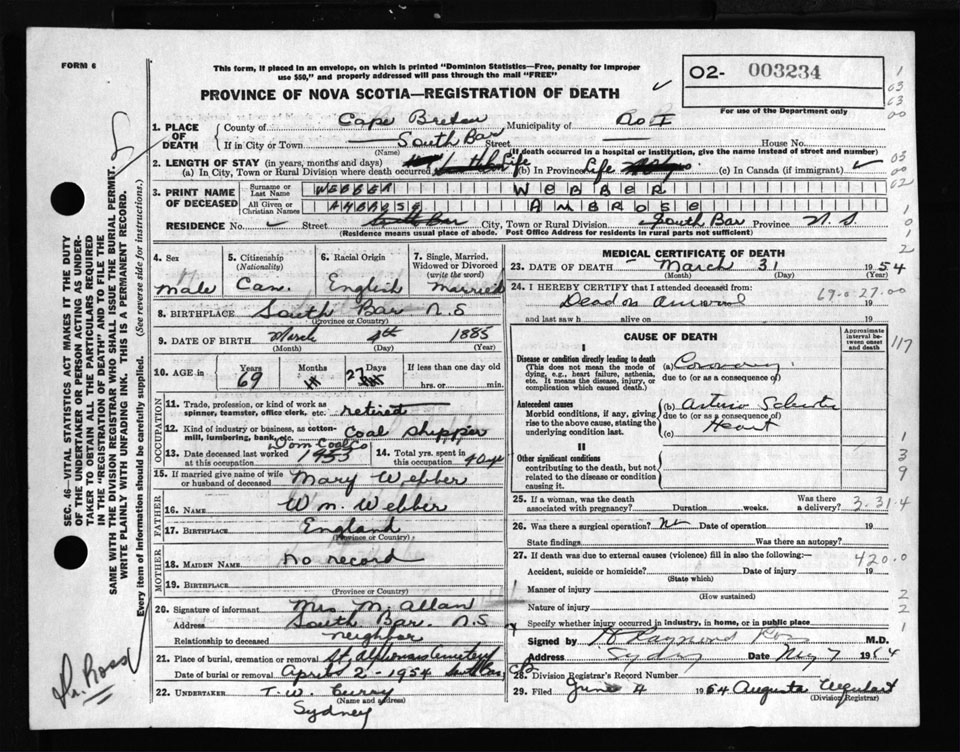 FORM 6
This form, if placed in an envelope, on which is printed "Dominion Statistics—Free, penalty for improper
use $50," and properly addressed will pass through the mail "FREE"
PROVINCE OF NOVA SCOTIA—REGISTRATION OF DEATH
02- 003234
For use of the Department only
1. PLACE OF DEATH
County of Cape Breton Municipality of
If in City or Town South Bar Street House No.
(Name) (If death occurred in a hospital or institution, give the name instead of street and number)
2. LENGTH OF STAY (in years, months and days)
(a) In City, Town or Rural Division where death occurred Life (b) In Province Life (c) In Canada (if immigrant)
3. PRINT NAME OF DECEASED
Surname or Last Name WEBBER WEBBER
All Given or Christian Names AMBROSE AMBROSE
RESIDENCE No. Street South Bar City, Town or Rural Division South Bar Province N. S.
(Residence means usual place of abode. Post Office Address for residents in rural parts not sufficient)
4. Sex Male
5. Citizenship (Nationality) Can.
6. Racial Origin English
7. Single, Married, Widowed or Divorced (write the word) Married
8. BIRTHPLACE South Bar N.S
(Province or Country)
9. DATE OF BIRTH March 4th 1885
(Month) (Day) (Year)
10. AGE in Years 69 Months Days 27 If less than one day old
hrs. or min.
OCCUPATION
11. Trade, profession, or kind of work as spinner, teamster, office clerk, etc. retired
12. Kind of industry or business, as cotton-mill, lumbering, bank, etc. coal shipper
Dom Coal Co
13. Date deceased last worked at this occupation 1953
14. Total yrs. spent in this occupation
15. If married give name of wife or husband of deceased Mary Webber
FATHER
16. NAME Wm. Webber
17. BIRTHPLACE England
(Province or Country)
MOTHER
18. MAIDEN NAME No record
19. BIRTHPLACE
(Province or Country)
20. Signature of informant Mrs. M. Allan
Address South Bar. N.S
Relationship to deceased neighbor
21. Place of burial, cremation or removal St. Alphonsus Cemetery
Date of burial or removal April 2 - 1954 South Bar
22. UNDERTAKER T. W. Curry
(Name and address)
Sydney
MEDICAL CERTIFICATE OF DEATH
23. DATE OF DEATH March 31 1954
(Month) (Day) (Year)
24. I HEREBY CERTIFY that I attended deceased from:
Dead on arrival 19
and last saw h alive on 19
69-0-27-00
CAUSE OF DEATH
Approximate interval between onset and death
I
Disease or condition directly leading to death
(This does not mean the mode of dying, e.g., heart failure, asthenia, etc. It means the disease, injury, or complication which caused death.)
(a) Coronary
due to (or as a consequence of)
Antecedent causes
Morbid conditions, if any, giving rise to the above cause, stating the underlying condition last.
(b)
due to (or as a consequence of)
Heart
(c)
II
Other significant conditions
contributing to the death, but not related to the disease or condition causing it.
25. If a woman, was the death associated with pregnancy? Duration weeks. Was there a delivery?
3-31-4
26. Was there a surgical operation? no Date of operation 19
State findings Was there an autopsy?
27. If death was due to external causes (violence) fill in also the following:—
420.0
Accident, suicide or homicide? Date of injury 19
(State which)
Manner of injury
(How sustained)
Nature of injury
Specify whether injury occurred in industry, in home, or in public place
Signed by H Raymond Ross M.D.
Address Sydney Date
28. Division Registrar's Record Number
29. Filed June 19 Augusta Urquhart
(Division Registrar)
SEC. 46—VITAL STATISTICS ACT MAKES IT THE DUTY
OF THE UNDERTAKER OR PERSON ACTING AS UNDER-
TAKER TO OBTAIN ALL THE PARTICULARS REQUIRED
IN THE "REGISTRATION OF DEATH" AND TO FILE THE
SAME WITH THE DIVISION REGISTRAR WHO SHALL ISSUE THE BURIAL PERMIT.
WRITE PLAINLY WITH UNFADING INK. THIS IS A PERMANENT RECORD.
Every item of information should be carefully supplied. (See reverse side for instructions.)
Dr. Ross